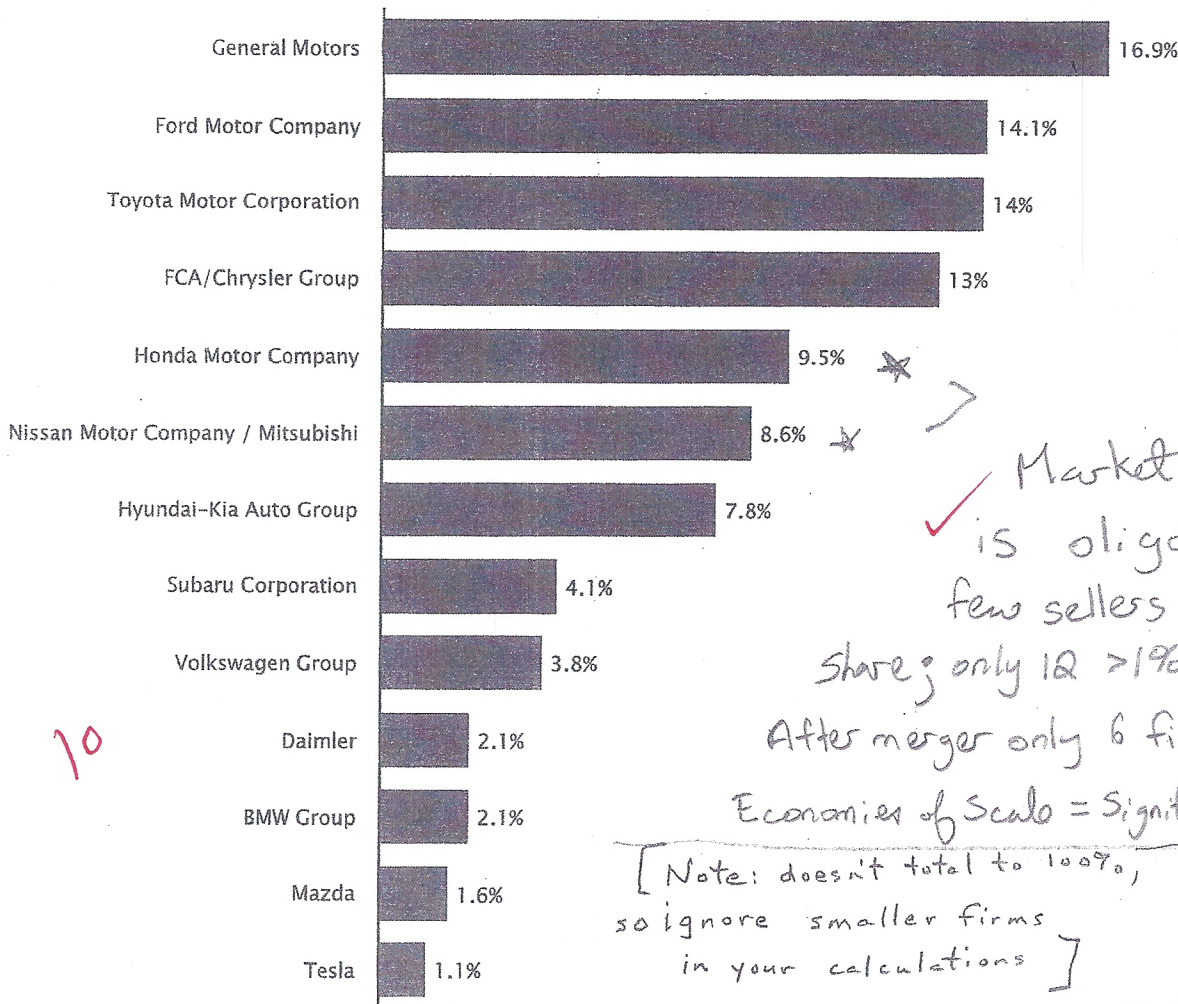 General Motors 16.9%
Ford Motor Company 14.1%
Toyota Motor Corporation 14%
FCA/Chrysler Group 13%
Honda Motor Company 9.5%
Nissan Motor Company / Mitsubishi 8.6%
Hyundai-Kia Auto Group 7.8%
Subaru Corporation 4.1%
Volkswagen Group 3.8%
Daimler 2.1%
BMW Group 2.1%
Mazda 1.6%
Tesla 1.1%
10
Market
is oligo
few sellers
share; only 12 >1%
After merger only 6 fi
Economies of Scale = Signif
[Note: doesn't total to 100%,
so ignore smaller firms
in your calculations]